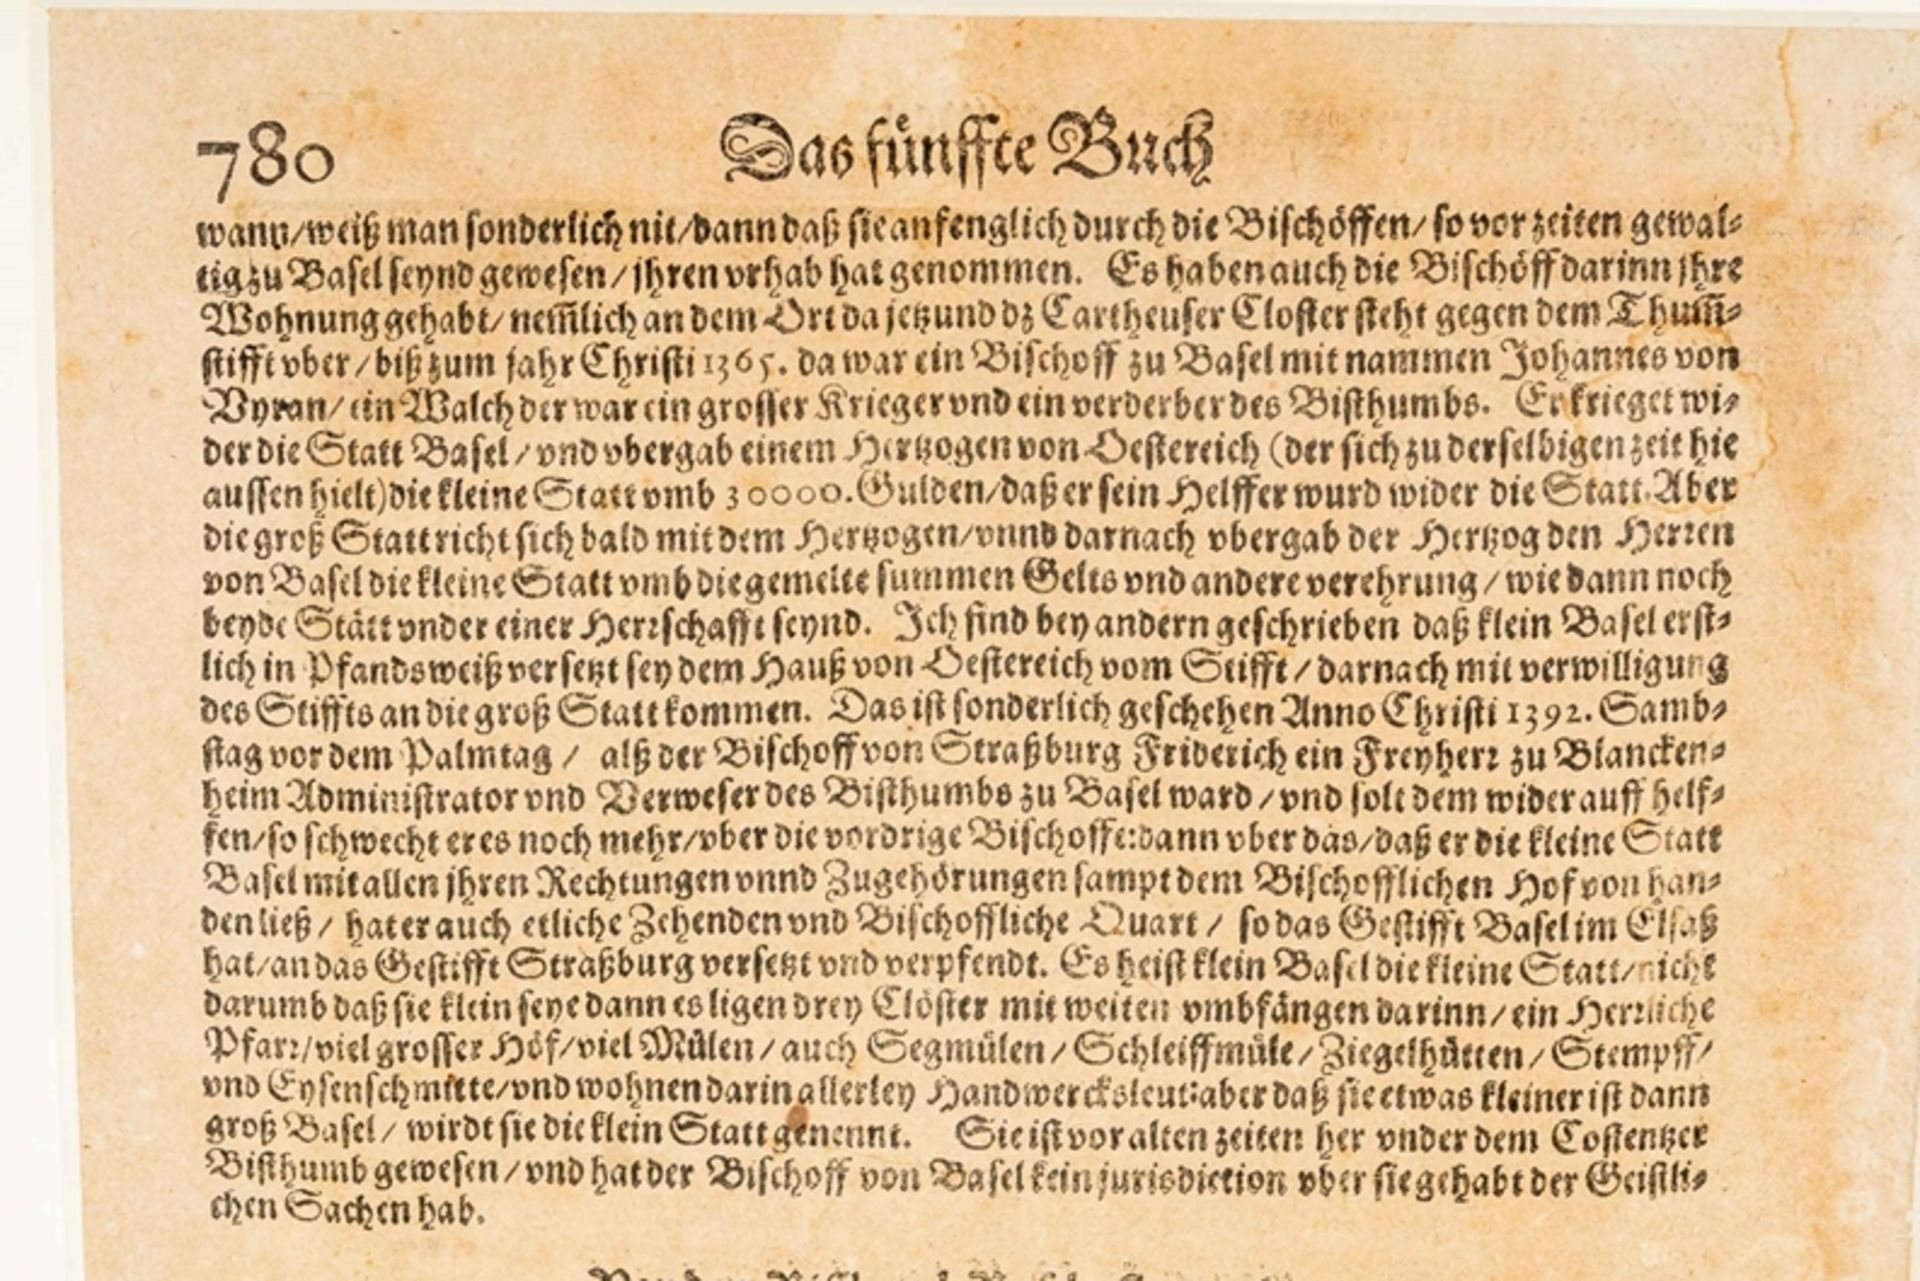 780 Das fünffte Buch
wann/weiß man sonderlich nit/dann daß sie anfenglich durch die Bischöffen/ so vor zeiten gewal-
tig zu Basel seynd gewesen/ jhren vrhab hat genommen. Es haben auch die Bischöff darinn jhre
Wohnung gehabt/ nem̃lich an dem Ort da jetzund dz Cartheuser Closter steht gegen dem Thum̃-
stifft vber/ biß zum jahr Christi 1365. da war ein Bischoff zu Basel mit nammen Johannes von
Vyran/ ein Walch der war ein grosser Krieger vnd ein verderber des Bisthumbs. Er krieget wi-
der die Statt Basel/ vnd vbergab einem Hertzogen von Oestereich (der sich zu derselbigen zeit hie
aussen hielt) die kleine Statt vmb 30000. Gulden/ daß er sein Helffer wurd wider die Statt. Aber
die groß Statt richt sich bald mit dem Hertzogen/ vnnd darnach vbergab der Hertzog den Herren
von Basel die kleine Statt vmb die gemelte summen Gelts vnd andere verehrung/ wie dann noch
beyde Stätt vnder einer Herrschafft seynd. Ich find bey andern geschrieben daß klein Basel erst-
lich in Pfandsweiß versetzt sey dem Hauß von Oestereich vom Stifft/ darnach mit verwilligung
des Stiffts an die groß Statt kommen. Das ist sonderlich geschehen Anno Christi 1392. Samb-
stag vor dem Palmtag/ alß der Bischoff von Straßburg Friderich ein Freyherr zu Blancken-
heim Administrator vnd Verweser des Bisthumbs zu Basel ward/ vnd solt dem wider auff helf-
fen/ so schwecht er es noch mehr/ vber die vordrige Bischoffe: dann vber das/ daß er die kleine Statt
Basel mit allen jhren Rechtungen vnnd Zugehörungen sampt dem Bischofflichen Hof von han-
den ließ/ hat er auch etliche Zehenden vnd Bischoffliche Quart/ so das Gestifft Basel im Elsaß
hat/ an das Gestifft Straßburg versetzt vnd verpfendt. Es heist klein Basel die kleine Statt/ nicht
darumb daß sie klein seye dann es ligen drey Clöster mit weiten vmbfängen darinn/ ein Herrliche
Pfarr/ viel grosser Höf/ viel Mülen/ auch Segmülen/ Schleiffmüle/ Ziegelhütten/ Stempff/
vnd Eysenschmitte/ vnd wohnen darin allerley Handwercksleut: aber daß sie etwas kleiner ist dann
groß Basel/ wirdt sie die klein Statt genennt. Sie ist vor alten zeiten her vnder dem Costentzer
Bisthumb gewesen/ vnd hat der Bischoff von Basel kein jurisdiction vber sie gehabt der Geistli-
chen Sachen hab.